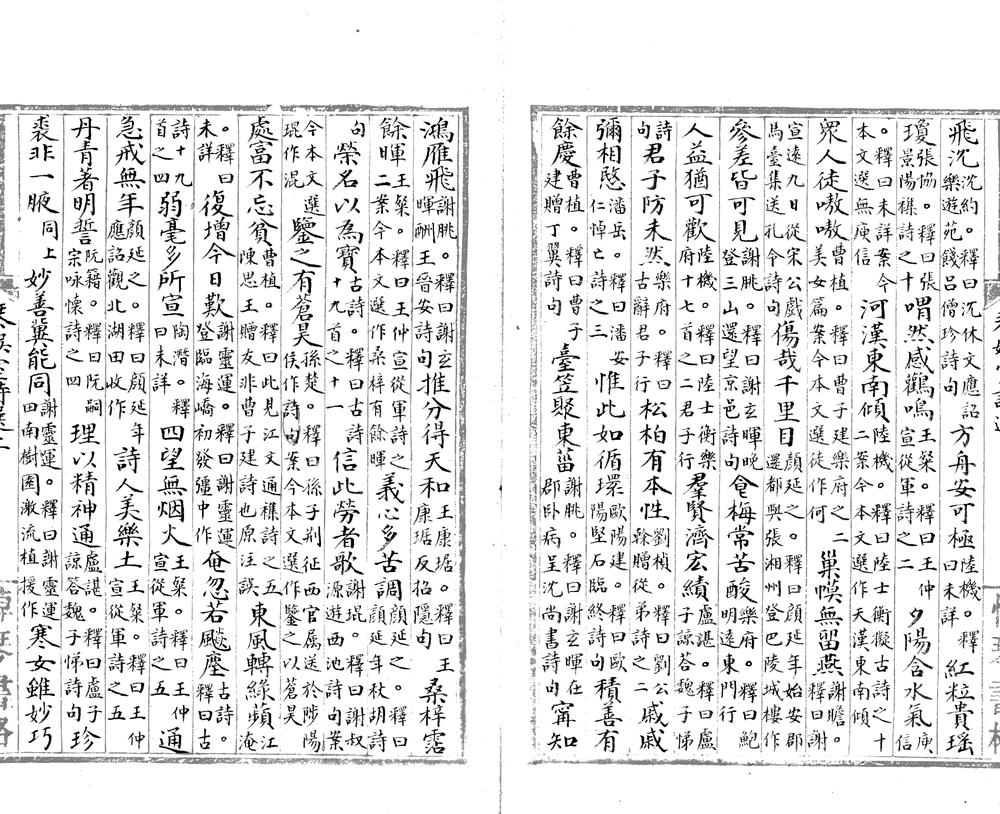 飛沈沈約。釋曰沈休文應詔樂遊苑餞呂僧珍詩句方舟安可極陸機。釋曰未詳紅粒貴瑤
瓊張協。釋曰張景陽襍詩之十喟然感鸛鳴王粲。釋曰王仲宣從軍詩之二夕陽含水氣庾信
。釋曰未詳案今本文選無庾信河漢東南傾陸機。釋曰陸士衡擬古詩之十二案今本文選作天漢東南傾
眾人徒嗷嗷曹植。釋曰曹子建樂府之二美女篇案今本文選徒作何巢幙無留燕謝瞻。釋曰謝
宣遠九日從宋公戲馬臺集送孔令詩句傷哉千里目顏延之。釋曰顏延年始安郡還都與張湘州登巴陵城樓作
參差皆可見謝朓。釋曰謝玄暉晚登三山還望京邑詩句食梅常苦酸樂府。釋曰鮑明遠東門行
人益猶可歡陸機。釋曰陸士衡樂府十七首之二君子行羣賢濟宏績盧諶。釋曰盧子諒荅魏子悌
詩句君子防未然樂府。釋曰古辭君子行松柏有本性劉楨。釋曰劉公幹贈從弟詩之二戚戚
彌相愍潘岳。釋曰潘安仁悼亡詩之三惟此如循環歐陽建。釋曰歐陽堅石臨終詩句積善有
餘慶曹植。釋曰曹子建贈丁翼詩句臺笠聚東菑謝朓。釋曰謝玄暉在郡臥病呈沈尚書詩句甯知
鴻雁飛謝朓。釋曰謝玄暉酬王晉安詩句推分得天和王康琚。釋曰王康琚反招隱句桑梓露
餘暉王粲。釋曰王仲宣從軍詩之二案今本文選作桑梓有餘暉義心多苦調顏延之。釋曰顏延年秋胡詩
句榮名以為寶古詩。釋曰古詩十九首之十一信此勞者歌謝琨。釋曰謝叔源遊西池詩句案
今本文選琨作混鑒之有蒼昊孫楚。釋曰孫子荆征西官屬送於陟陽侯作詩句案今本文選作鑒之以蒼昊
處富不忘貧曹植。釋曰此見江文通襍詩之五陳思王贈友非曹子建詩也原注誤東風轉綠蘋江淹
。釋曰未詳復增今日歎謝靈運。釋曰謝靈運登臨海嶠初發彊中作奄忽若飈塵古詩。釋曰古
詩十九首之四弱毫多所宣陶潛。釋曰未詳四望無烟火王粲。釋曰王仲宣從軍詩之五通
急戒無年顏延之。釋曰顏延年應詔觀北湖田收作詩人美樂土王粲。釋曰王仲宣從軍詩之五
丹青著明誓阮籍。釋曰阮嗣宗咏懷詩之四理以精神通盧諶。釋曰盧子諒答魏子悌詩句珍
裘非一腋同上妙善冀能同謝靈運。釋曰謝靈運田南樹園激流植援作寒女雖妙巧